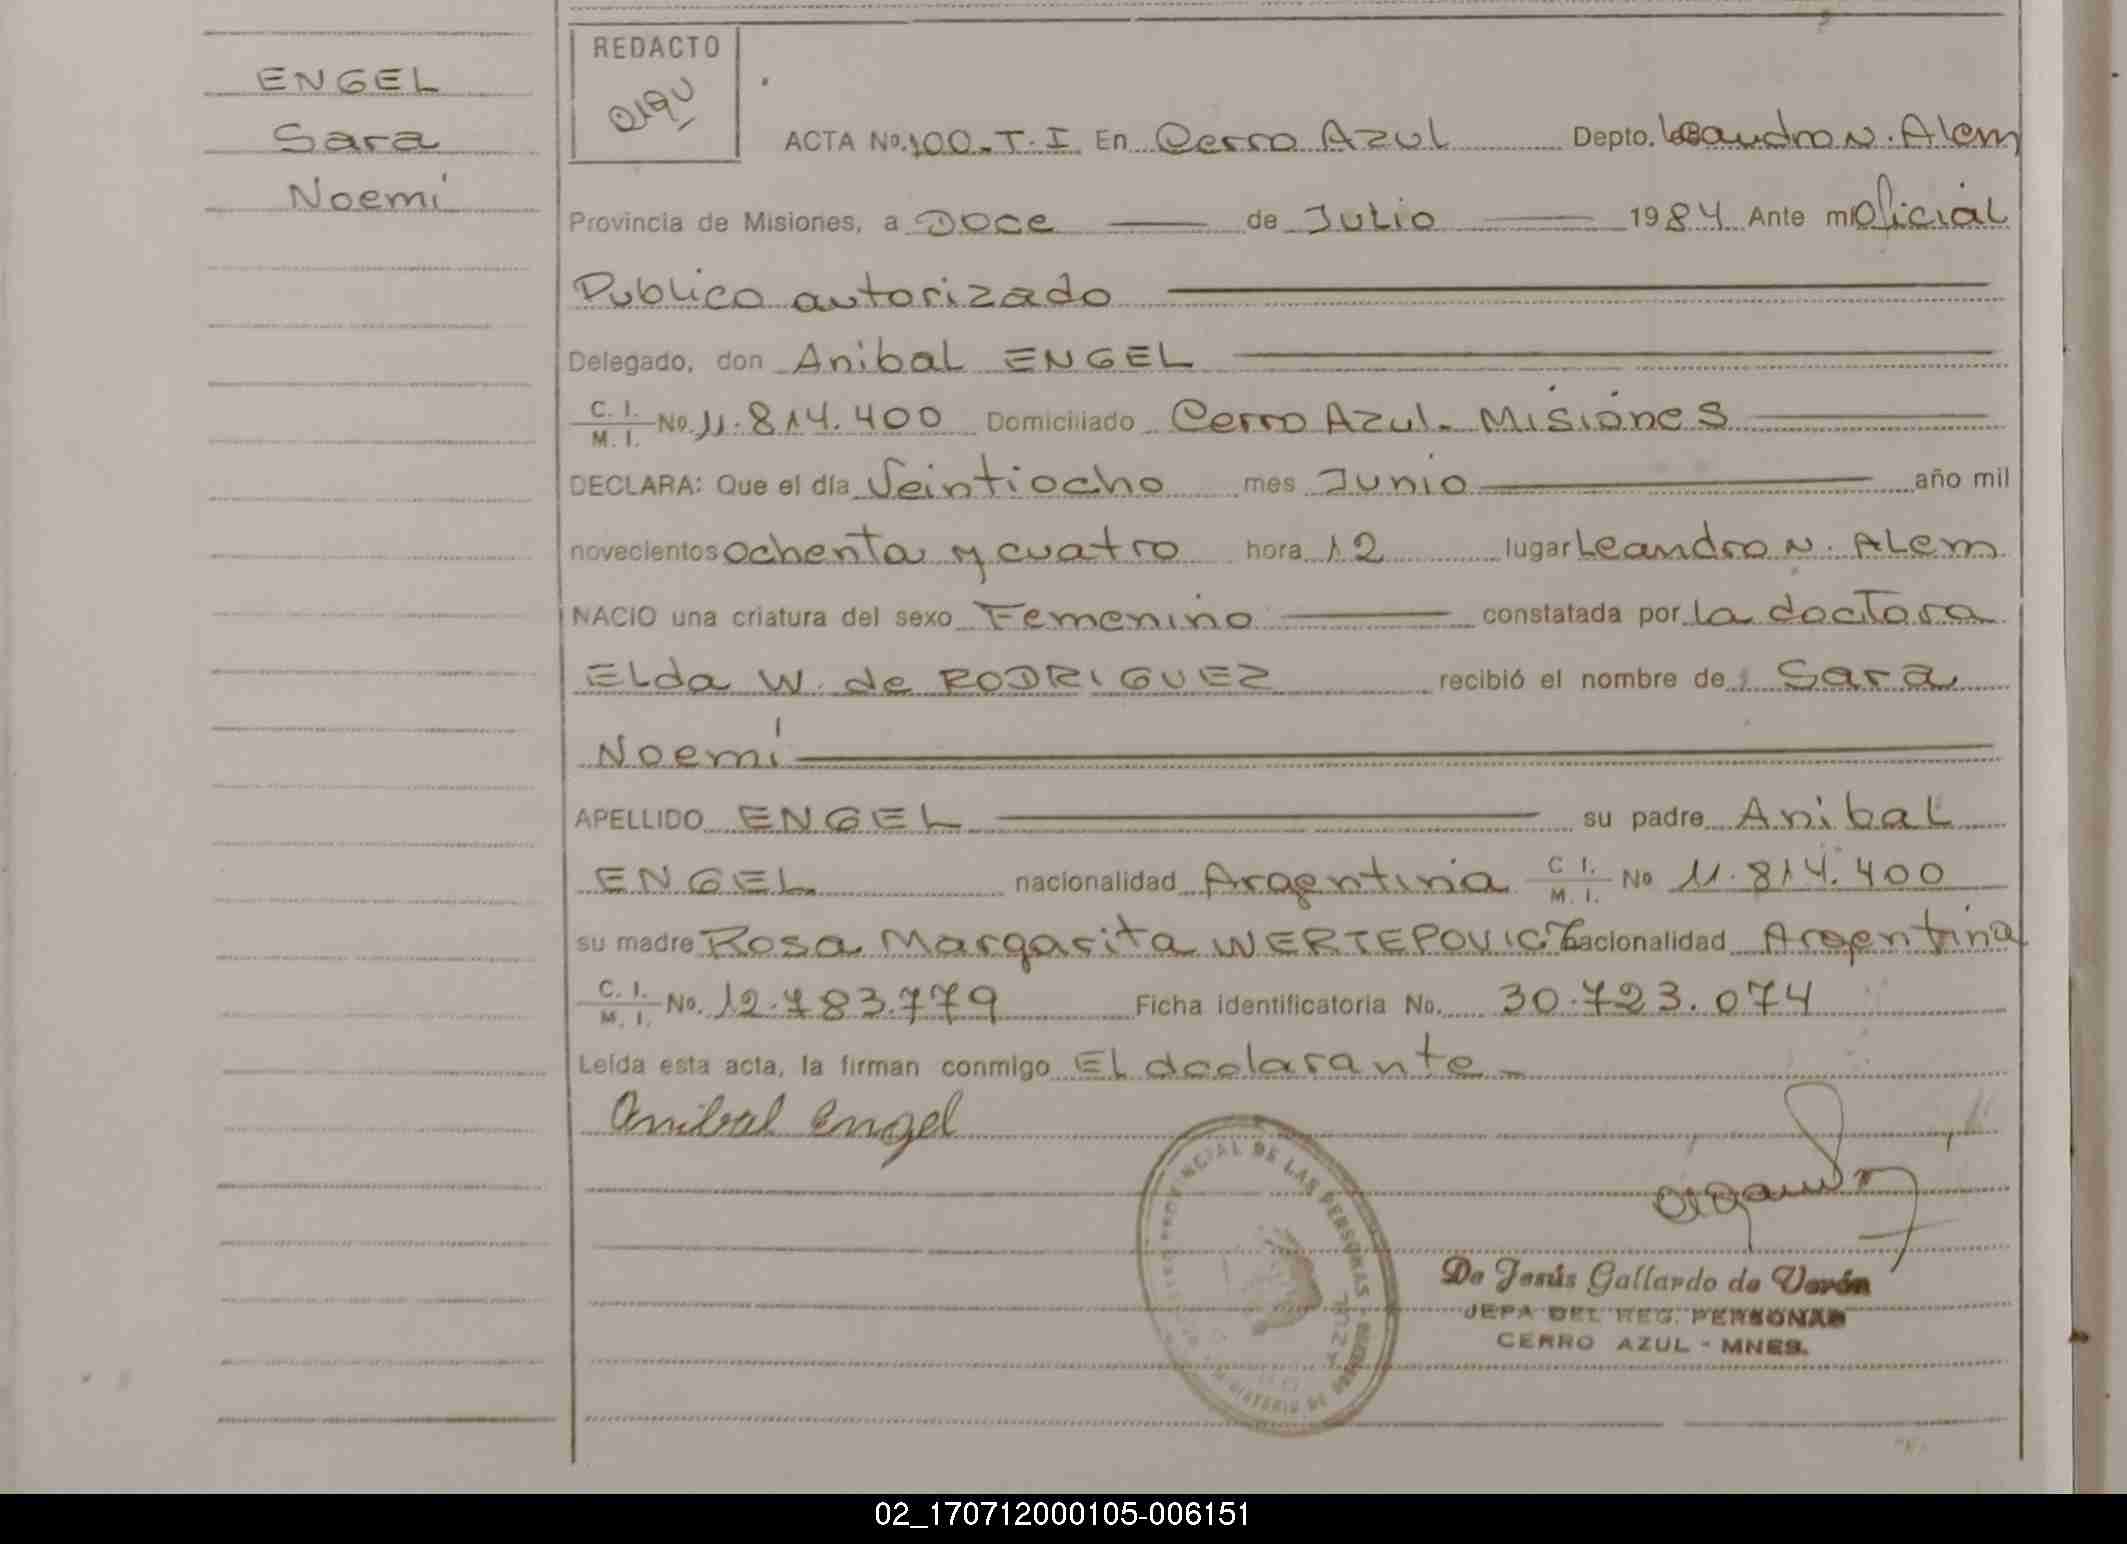 ENGEL
Sara
Noemí
REDACTO
ACTA No. 100-T.I En Cerro Azul Depto. Leandro N. Alem
Provincia de Misiones, a Doce de Julio 1984 Ante mi Oficial
Publico autorizado
Delegado, don Anibal ENGEL
C. I. M. I. No. 11.814.400 Domiciliado Cerro Azul - Misiones
DECLARA: Que el día Veintiocho mes Junio año mil
novecientos ochenta y cuatro hora 12 lugar Leandro N. Alem
NACIO una criatura del sexo Femenino constatada por la doctora
Elda W. de RODRIGUEZ recibió el nombre de Sara
Noemí
APELLIDO ENGEL su padre Anibal
ENGEL nacionalidad Argentina C. I. M. I. No 11.814.400
su madre Rosa Margarita WERTEPOVICZ nacionalidad Argentina
C. I. M. I. No. 12.783.779 Ficha identificatoria No. 30.723.074
Leída esta acta, la firman conmigo El declarante -
Anibal Engel
PROVINCIAL DE LAS PERSONAS
MINISTERIO DE
AZUL
De Jesús Gallardo de Verón
JEFA DEL REG. PERSONAS
CERRO AZUL - MNES.
02_170712000105-006151